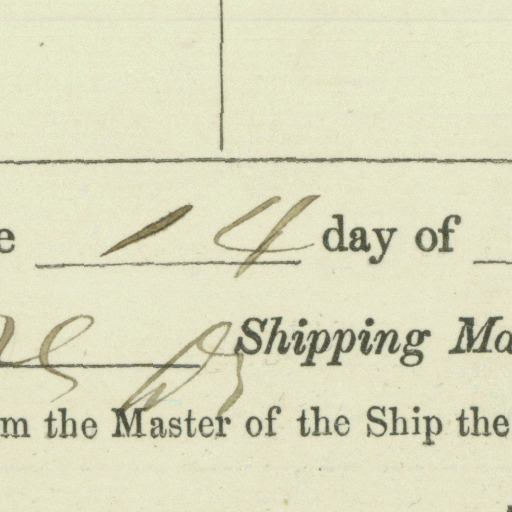 e 14 day of
Shipping Ma
m the Master of the Ship the